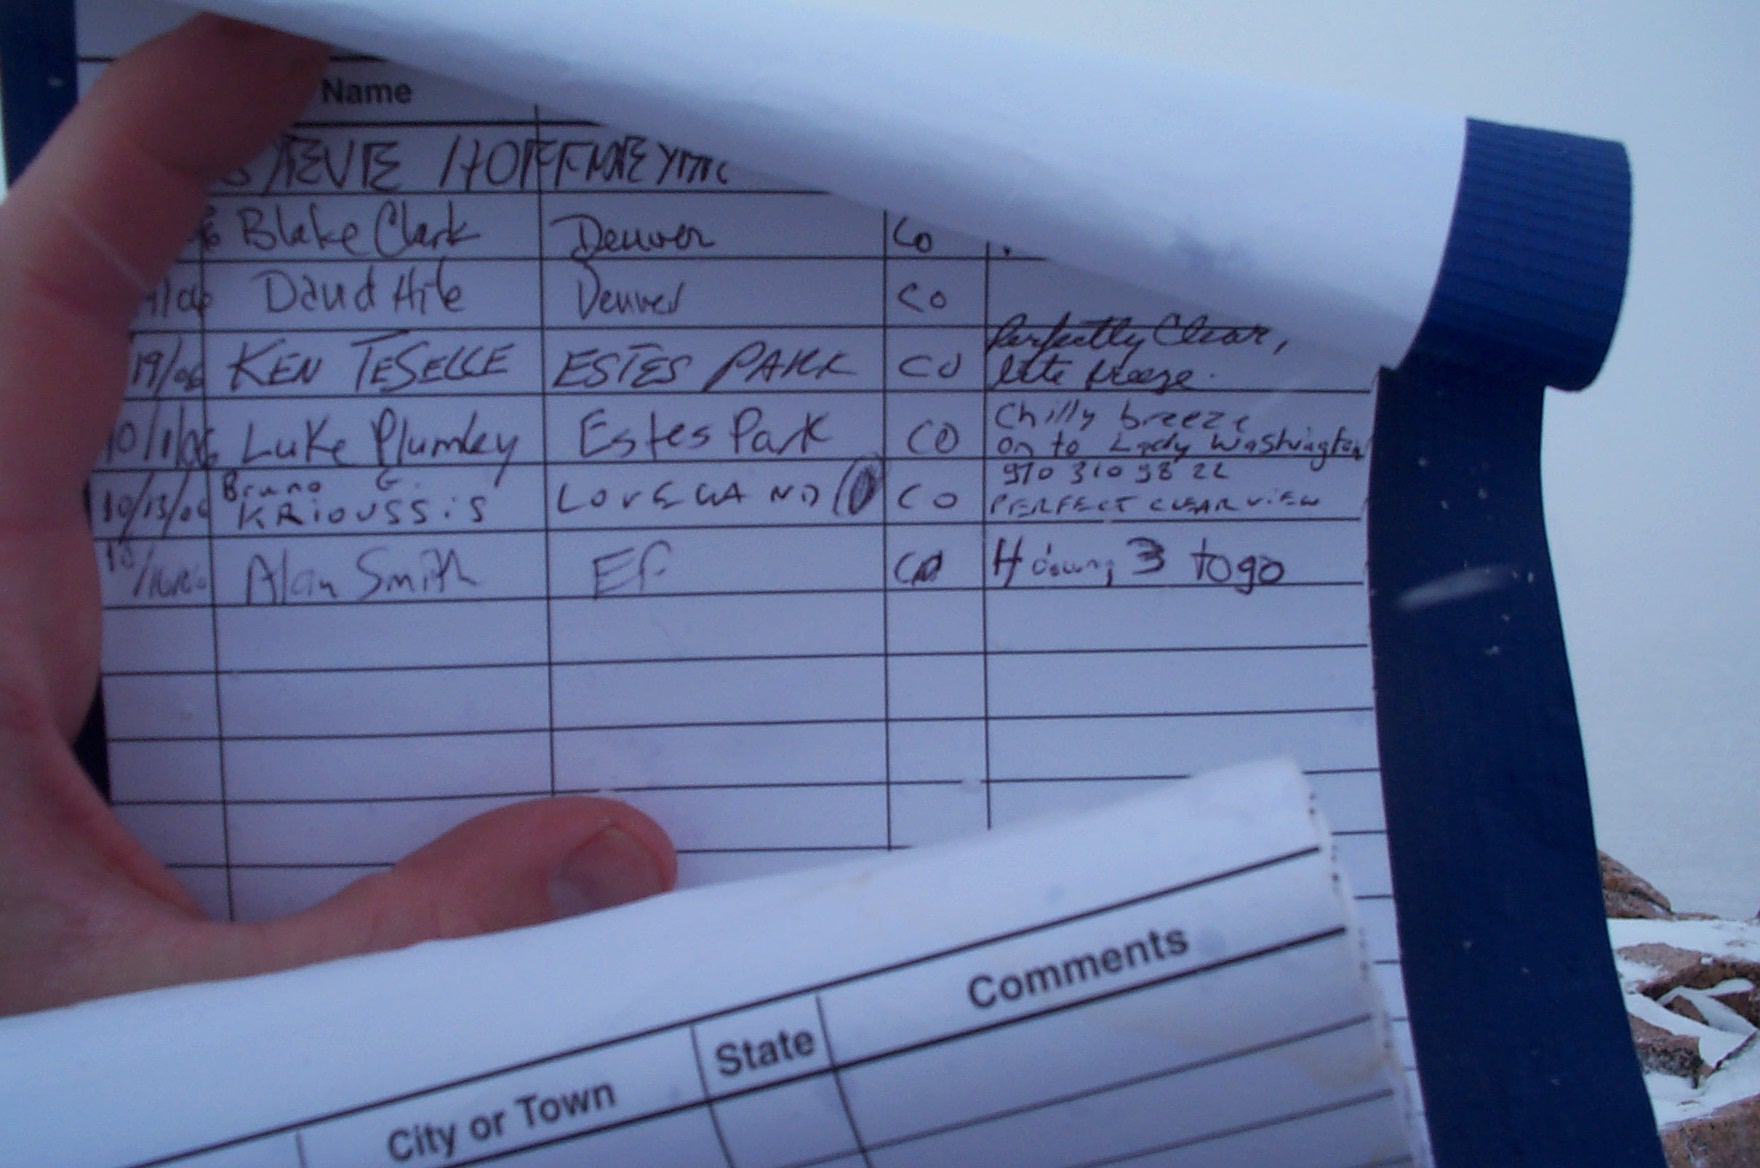 Name
STEVE HOFFMEYER
Blake Clark Denver Co
/06 David Hite Denver CO
Perfectly Clear,
19/06 KEN TESELLE ESTES PARK CO little breeze.
Chilly breeze
10/1/06 Luke Plumley Estes Park CO on to Lady Washington
Bruno G. 970 310 98 22
10/13/06 KRIOUSSIS LOVELAND CO PERFECT CLEAR VIEW
10/16/06 Alan Smith EP CO 4 down, 3 to go
City or Town State Comments